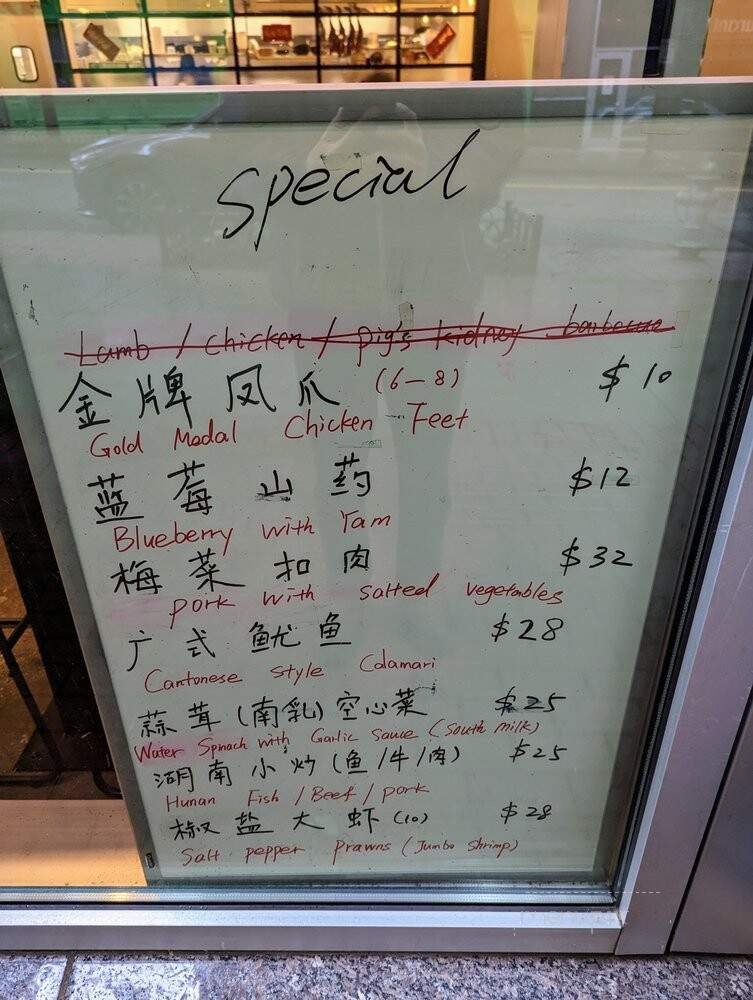 Special
Lamb / chicken / pig's kidney barbecue
金牌凤爪 (6-8) $10
Gold Madal Chicken Feet
蓝莓山药 $12
Blueberry with Yam
梅菜扣肉 $32
pork with salted vegetables
广式鱿鱼 $28
Cantonese style Calamari
蒜茸(南乳)空心菜 $25
Water Spinach with Garlic sauce (south milk)
湖南小炒(鱼/牛/肉) $25
Hunan Fish / Beef / pork
椒盐大虾(10) $28
Salt pepper prawns (Jumbo shrimp)